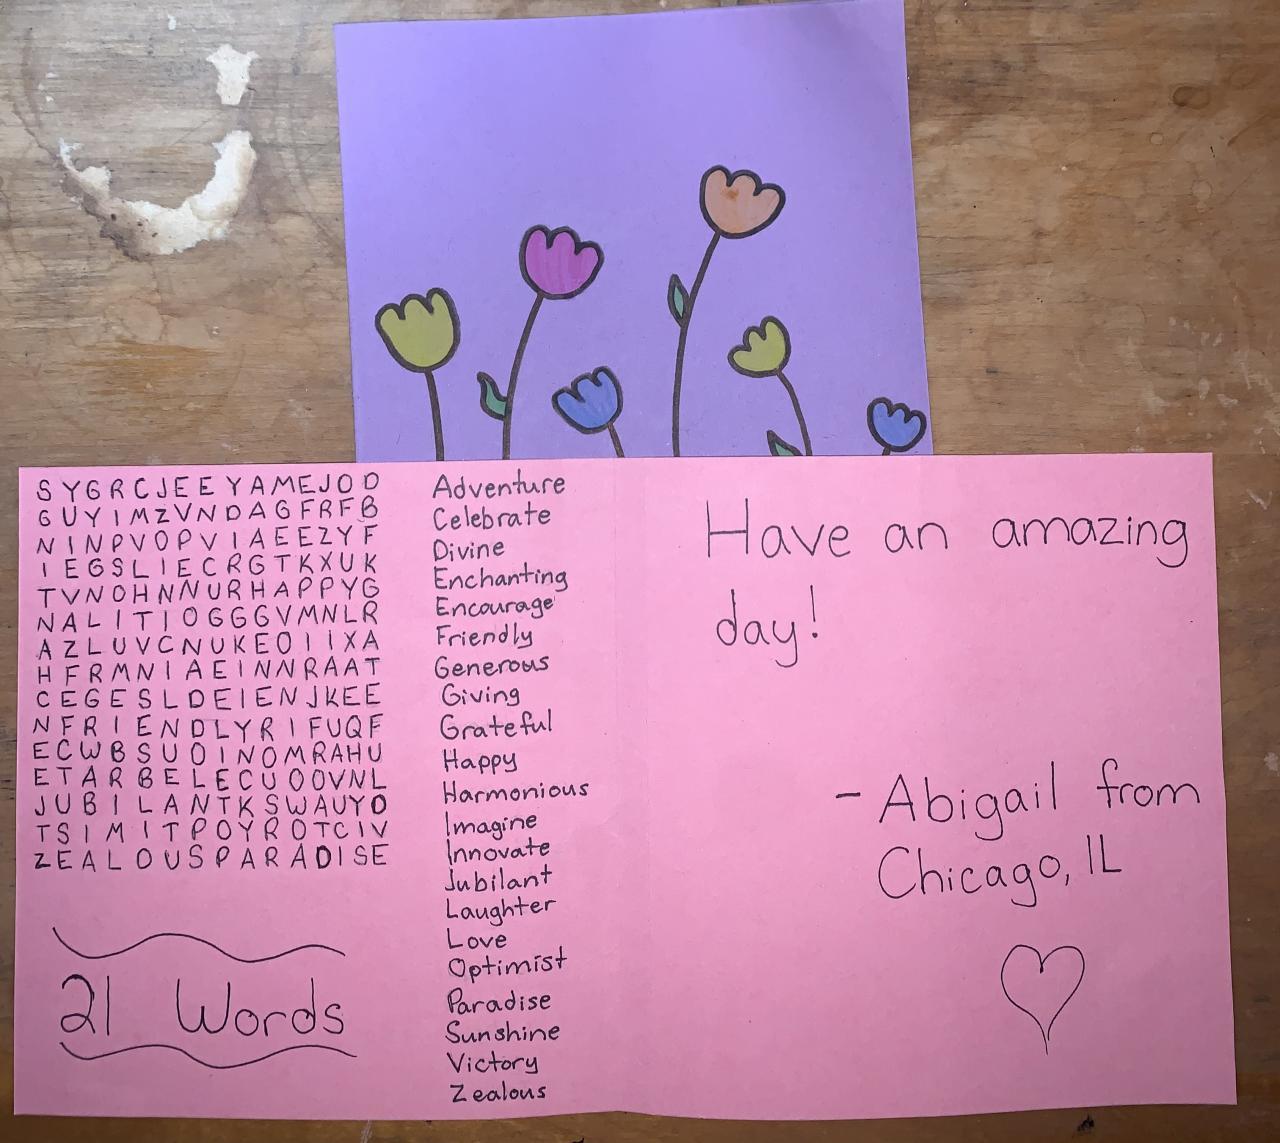 SYGRCJEEYAMEJOD
GUYIMZVNDAGFRFB
NINPVOPVIAEEZYF
IEGSLIECRGTKXUK
TVNOHNNURHAPPYG
NALITIOGGGVMNLR
AZLUVCNUKEOIIXA
HFRMNIAEINNRAAT
CEGESLDEIENJKEE
NFRIENDLYRIFUQF
ECWBSUOINOMRAHU
ETARBELECUOOVNL
JUBILANTKSWAUYO
TSIMITPOYROTCIV
ZEALOUSPARADISE
21 Words
Adventure
Celebrate
Divine
Enchanting
Encourage
Friendly
Generous
Giving
Grateful
Happy
Harmonious
Imagine
Innovate
Jubilant
Laughter
Love
Optimist
Paradise
Sunshine
Victory
Zealous
Have an amazing
day!
- Abigail from
Chicago, IL